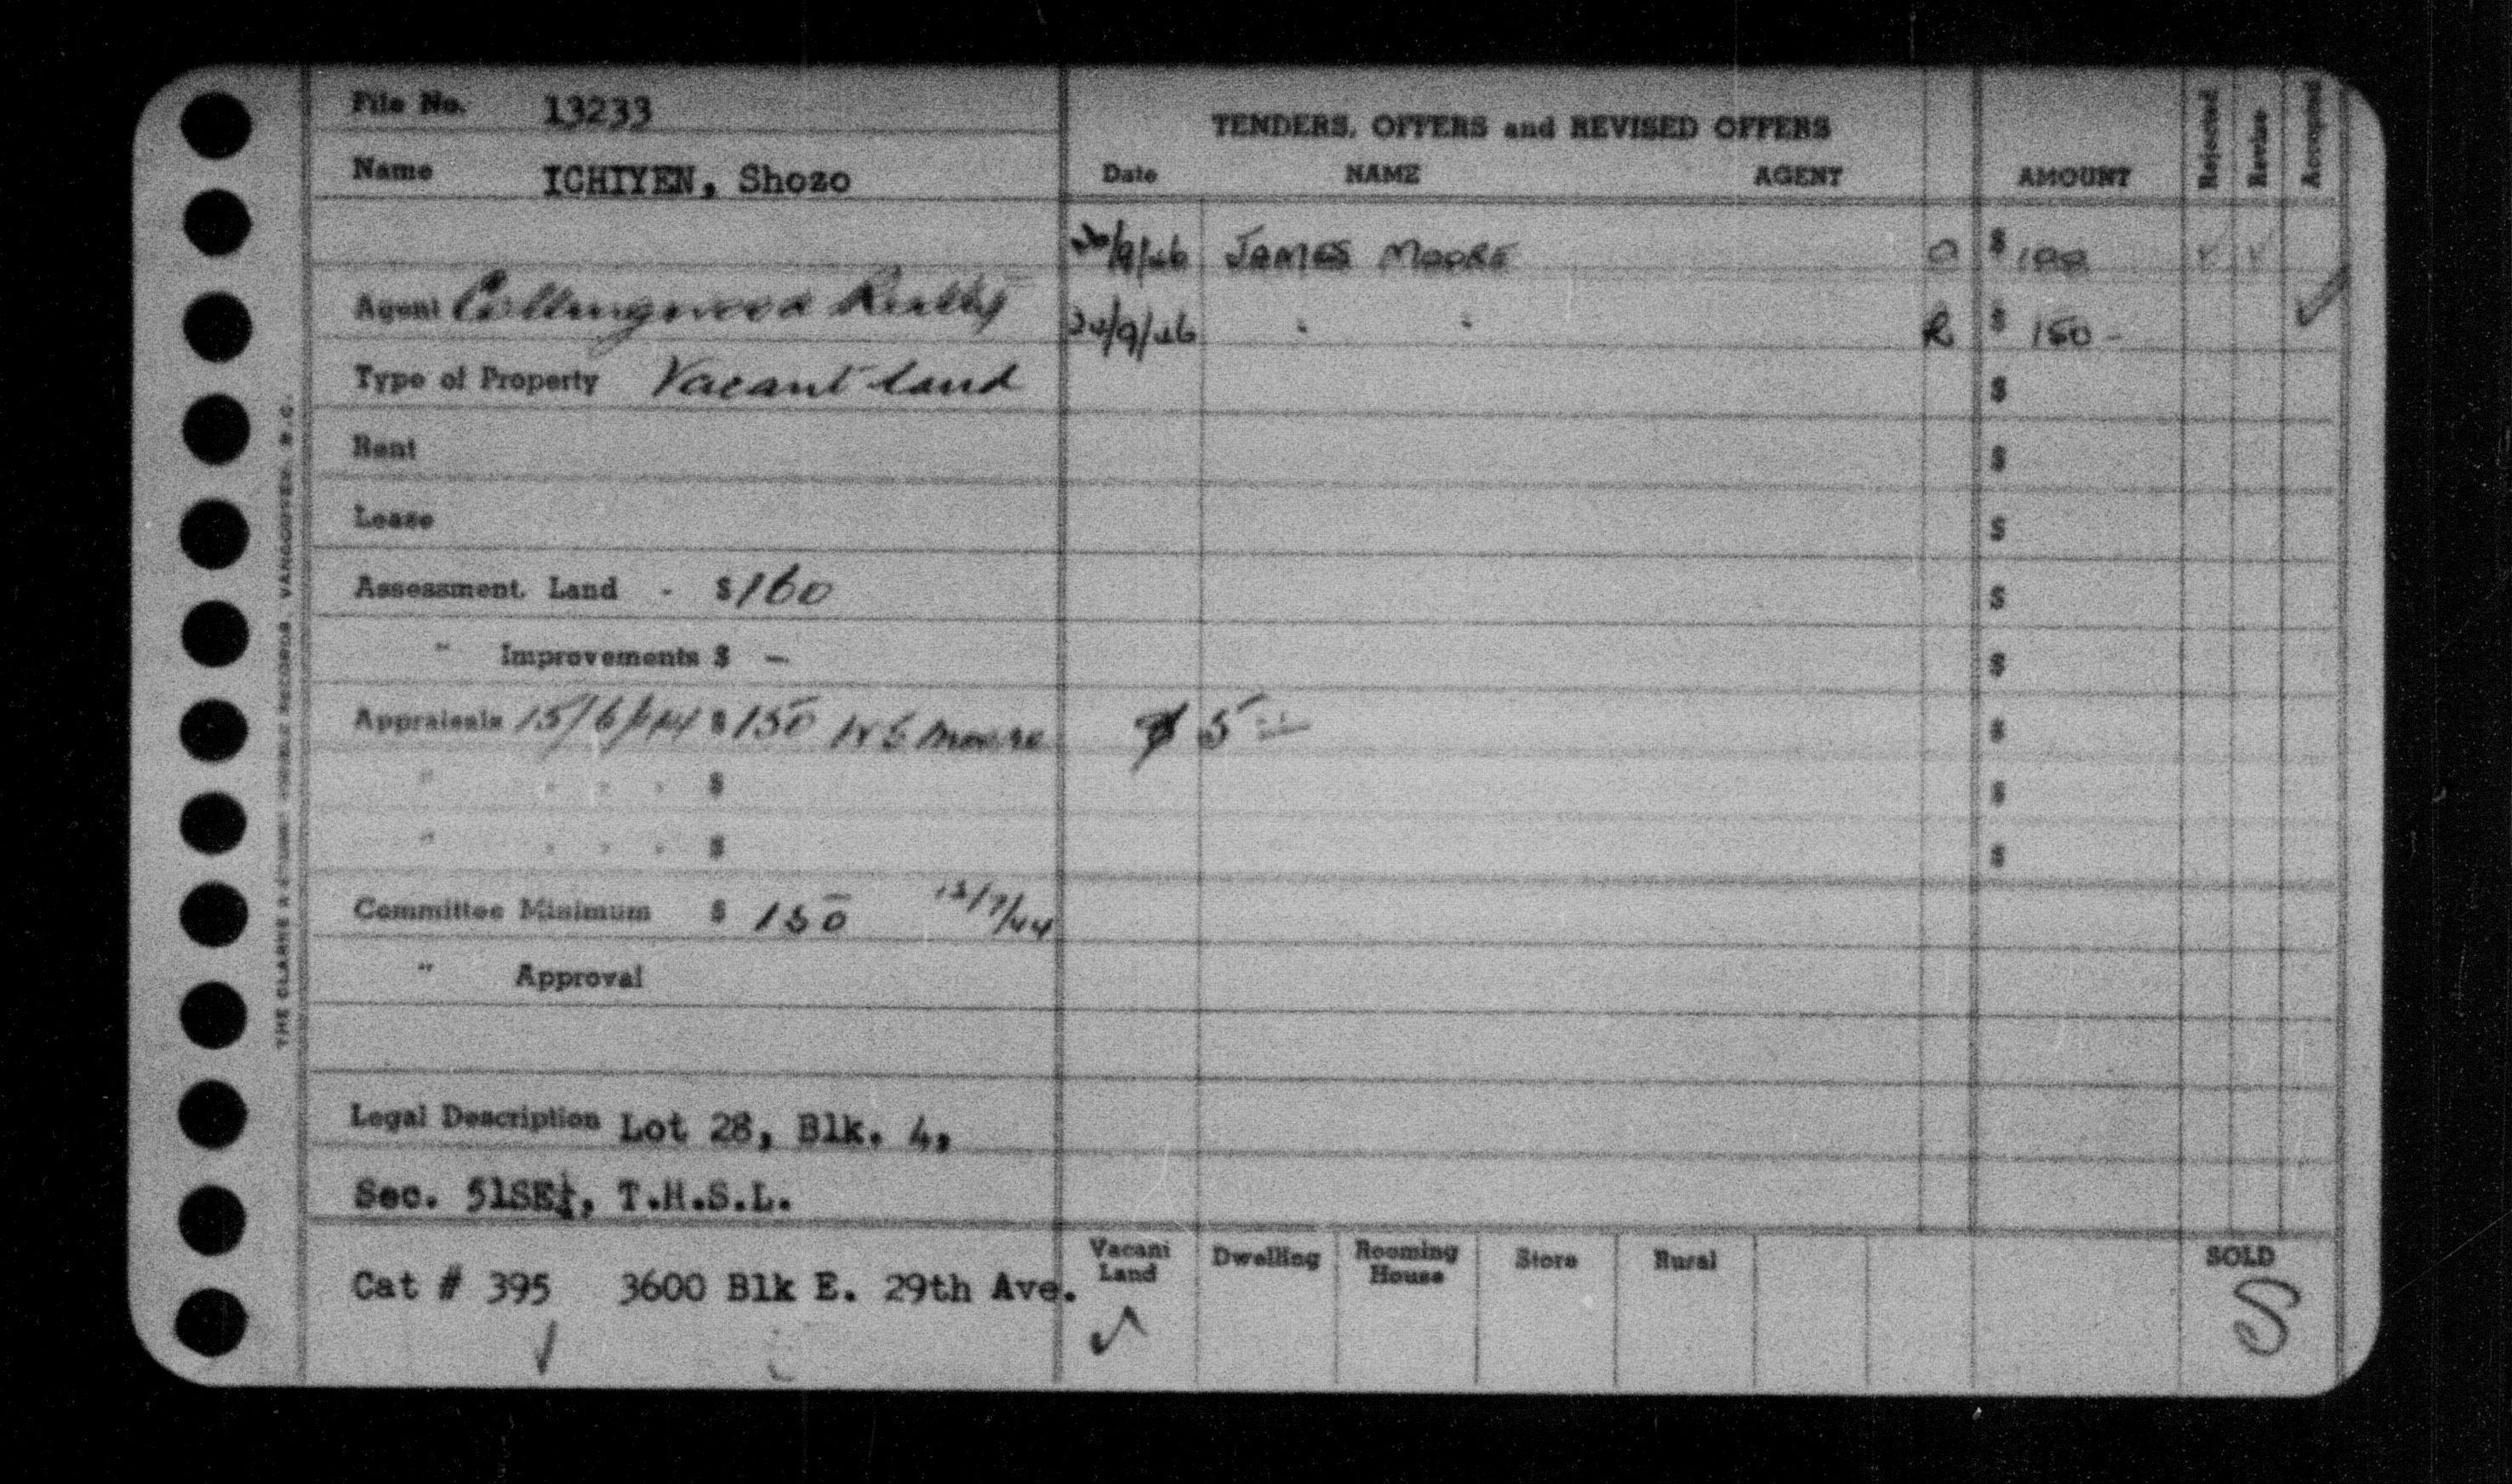 File No. 13233
Name ICHIYEN, Shozo
Agent Collingwood Realty
Type of Property Vacant land
Rent
Lease
Assessment. Land - $160
" Improvements $ -
Appraisals 15/6/44 $150 W S Moore $5
" $
" $
Committee Minimum $ 150 13/7/44
" Approval
Legal Description Lot 28, Blk. 4,
Sec. 51SE¼, T.H.S.L.
Cat # 395 3600 Blk E. 29th Ave.
THE CLARKE & STUART VISIBLE RECORDS, VANCOUVER, B.C.
TENDERS, OFFERS and REVISED OFFERS
Date NAME AGENT AMOUNT Rejected Revise Accepted
/9/46 JAMES MOORE O $ 100 ✓ ✓
/9/46 " " R $ 150- ✓
$
$
$
$
$
$
$
$
Vacant Land Dwelling Rooming House Store Rural SOLD
✓ ✓ S